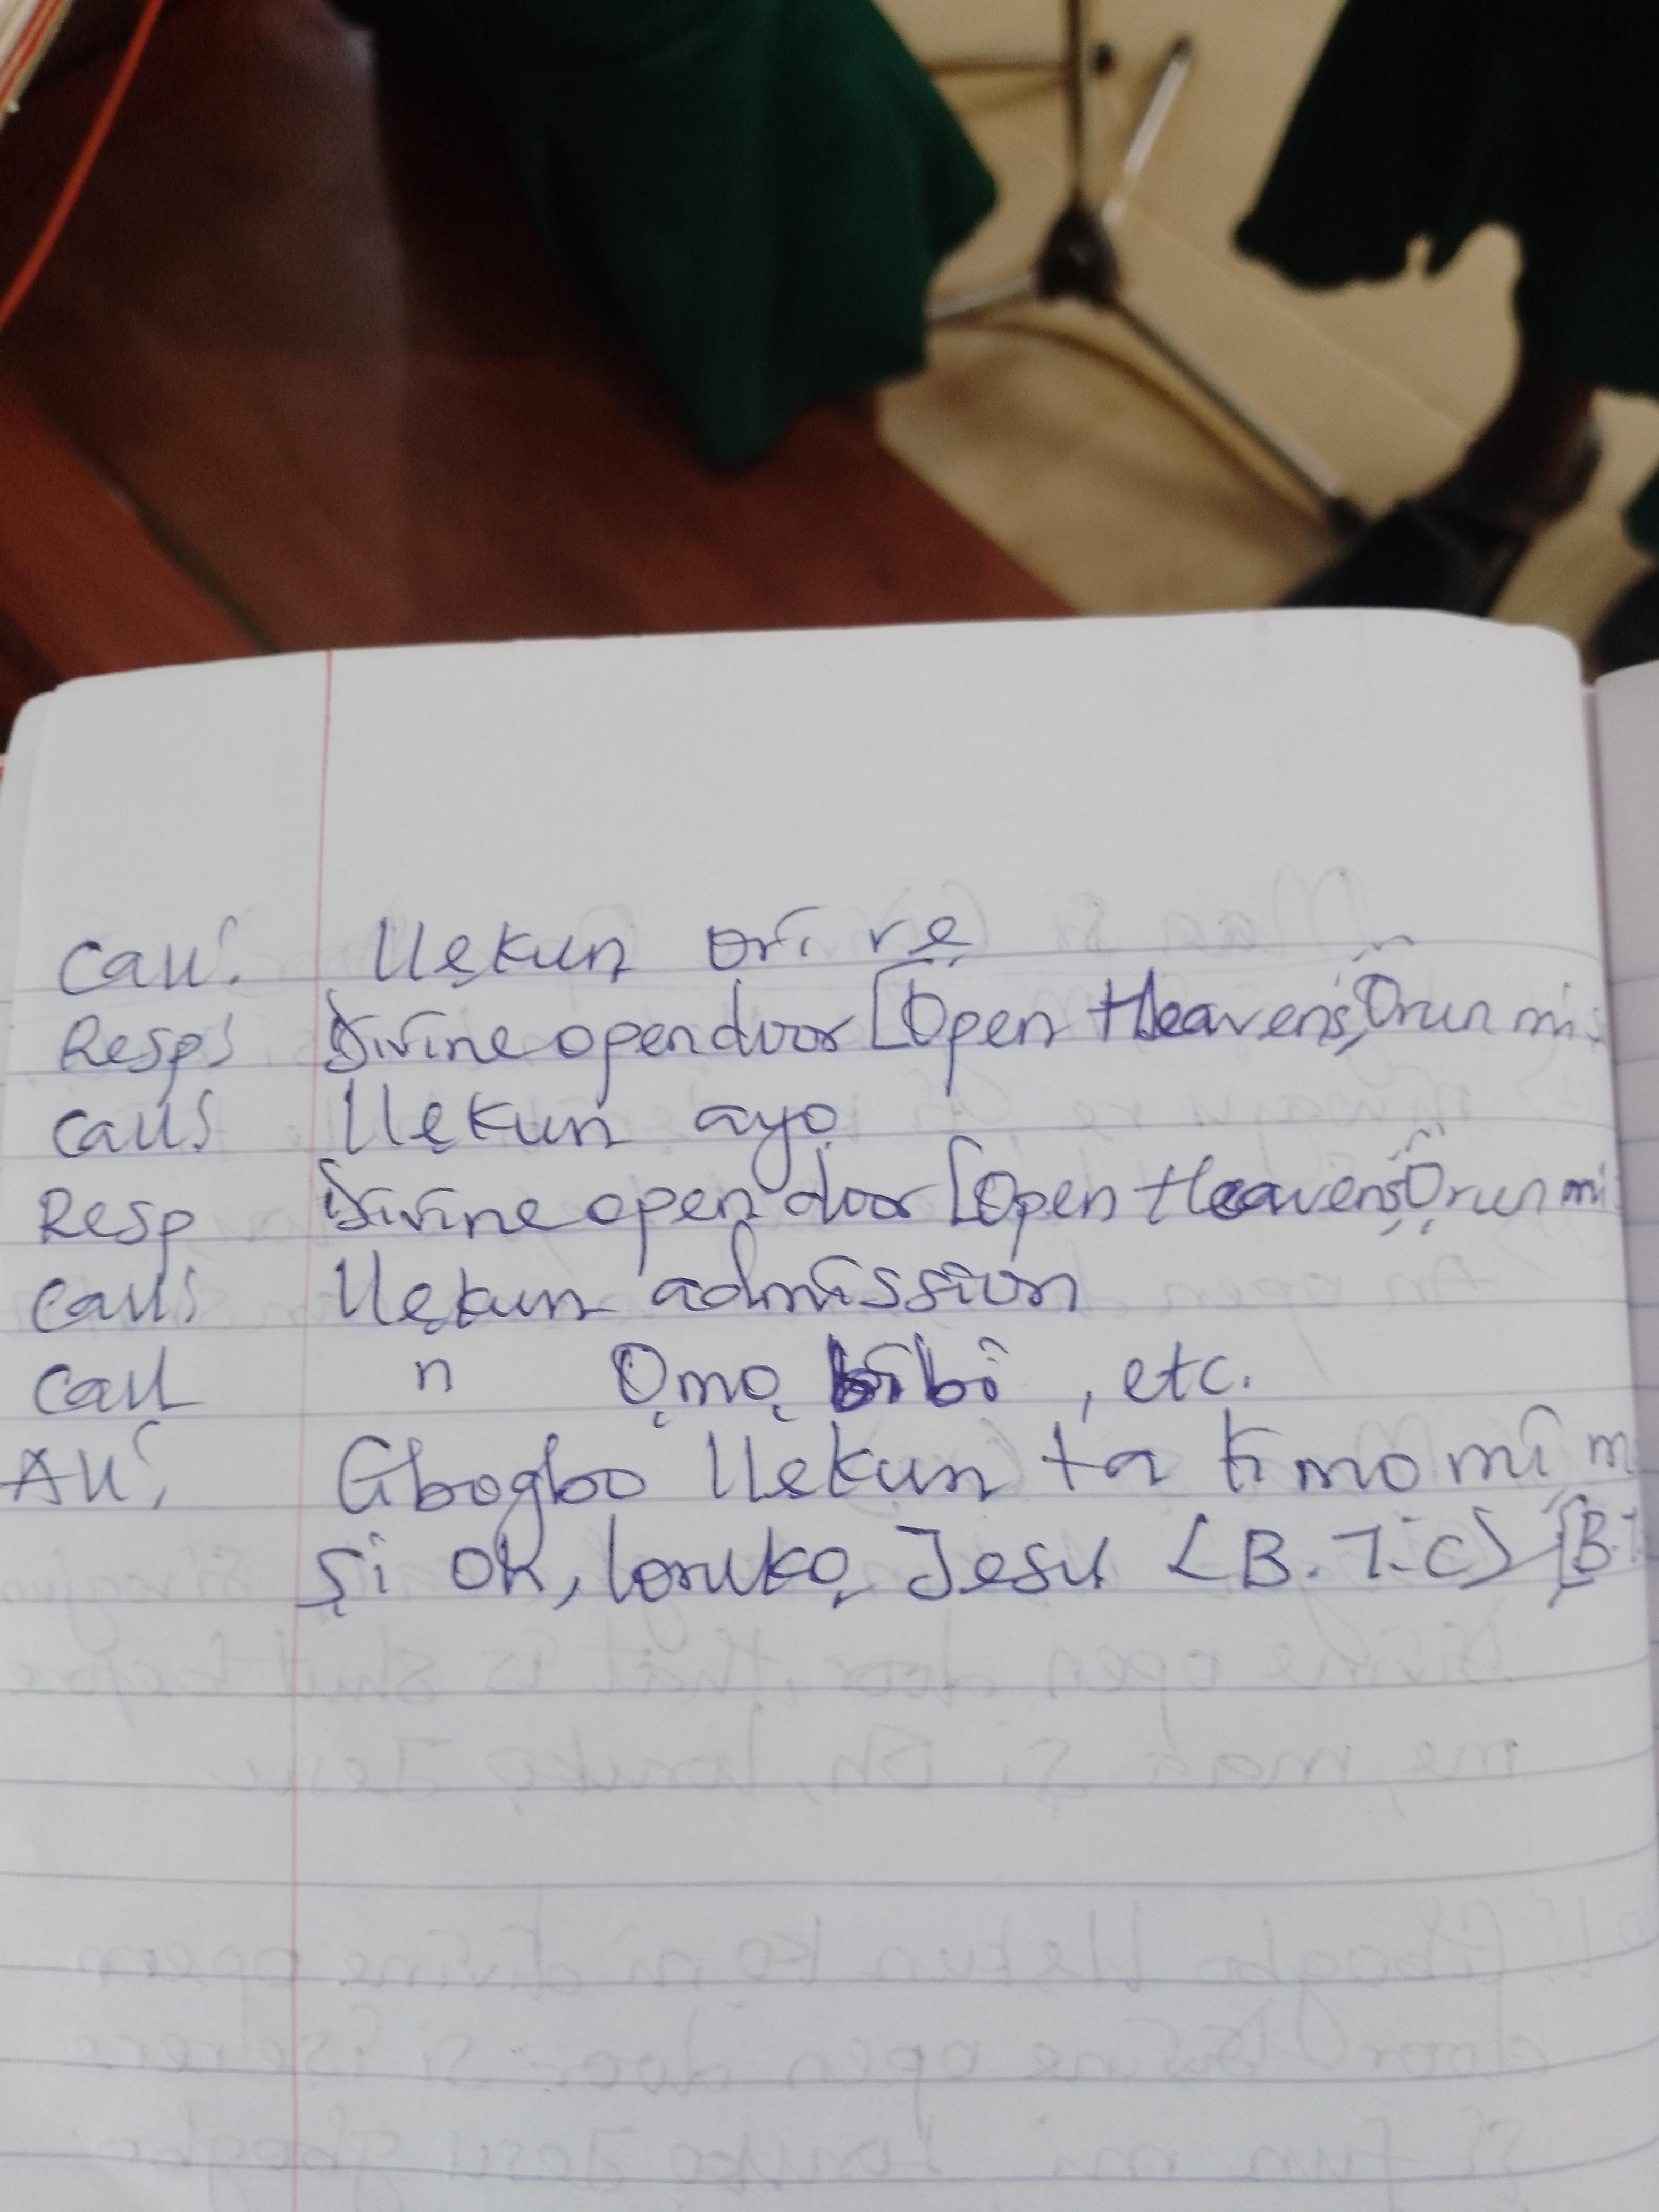 Call: Ilẹkun ori rẹ
Resp: Divine open door [Open Heavens, Ọrun mi
Call: Ilẹkun ayọ
Resp Divine open door [Open Heavens, Ọrun mi
Call: Ilẹkun admission
Call " Ọmọ bibi, etc.
All: Gbogbo Ilẹkun ta ti mo mi m
ṣi oh, lorukọ Jesu [B.T.C] [B.T